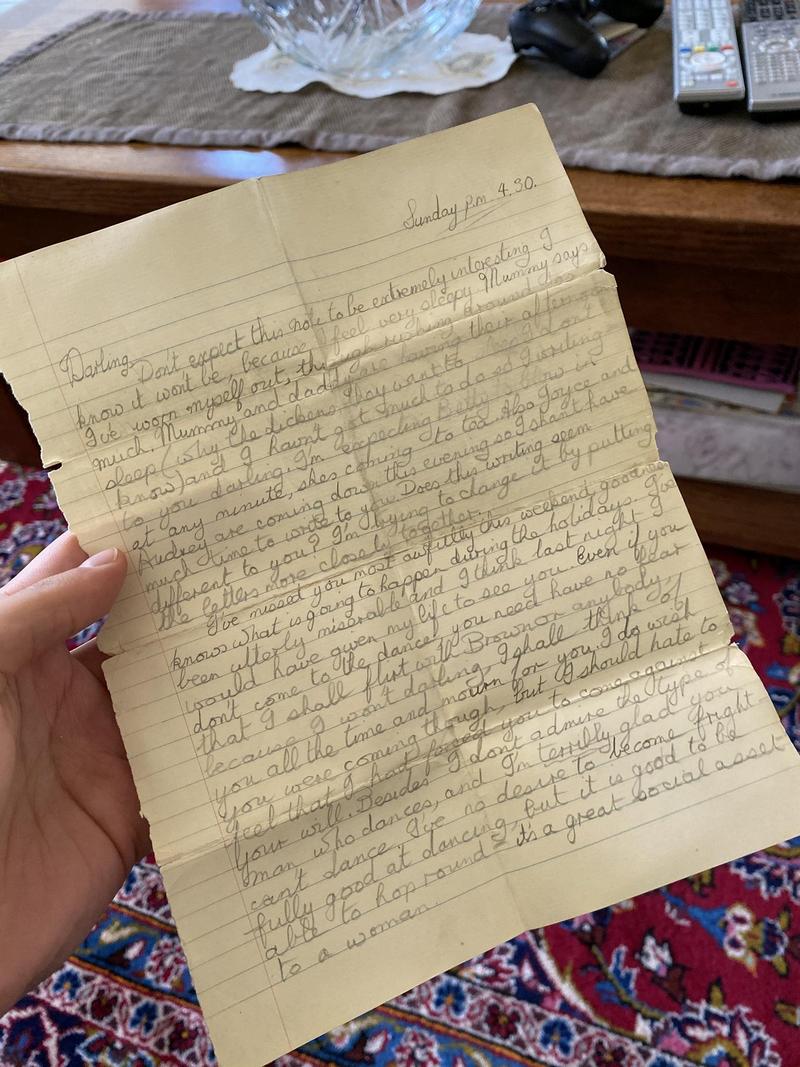 Sunday p.m. 4.30.
Darling
Don't expect this note to be extremely interesting I
know it won't be, because I feel very sleepy. Mummy says
I've worn myself out, through rushing around too
much. Mummy and daddy are having their afternoon
sleep (why the dickens they want to sleep I don't
know) and I havn't got much to do so I writing
to you darling. I'm expecting Betty to blow in
at any minute, shes coming to tea. Also Joyce and
Audrey are coming down this evening so I shan't have
much time to write to you. Does this writing seem
different to you? I'm trying to change it by putting
the letters more closely together.
I've missed you most awfully this weekend, goodness
knows what is going to happen during the holidays. I've
been utterly miserable and I think last night I
would have given my life to see you. Even if you
don't come to the dance, you need have no fear
that I shall flirt with Brown or anybody,
because I won't darling, I shall think of
you all the time and mourn for you. I do wish
you were coming though, but I should hate to
feel that I had forced you to come against
your will. Besides I dont admire the type of
man who dances, and I'm terribly glad you
can't dance. I've no desire to become fright
fully good at dancing, but it is good to be
able to hop round - it's a great social asset
to a woman.